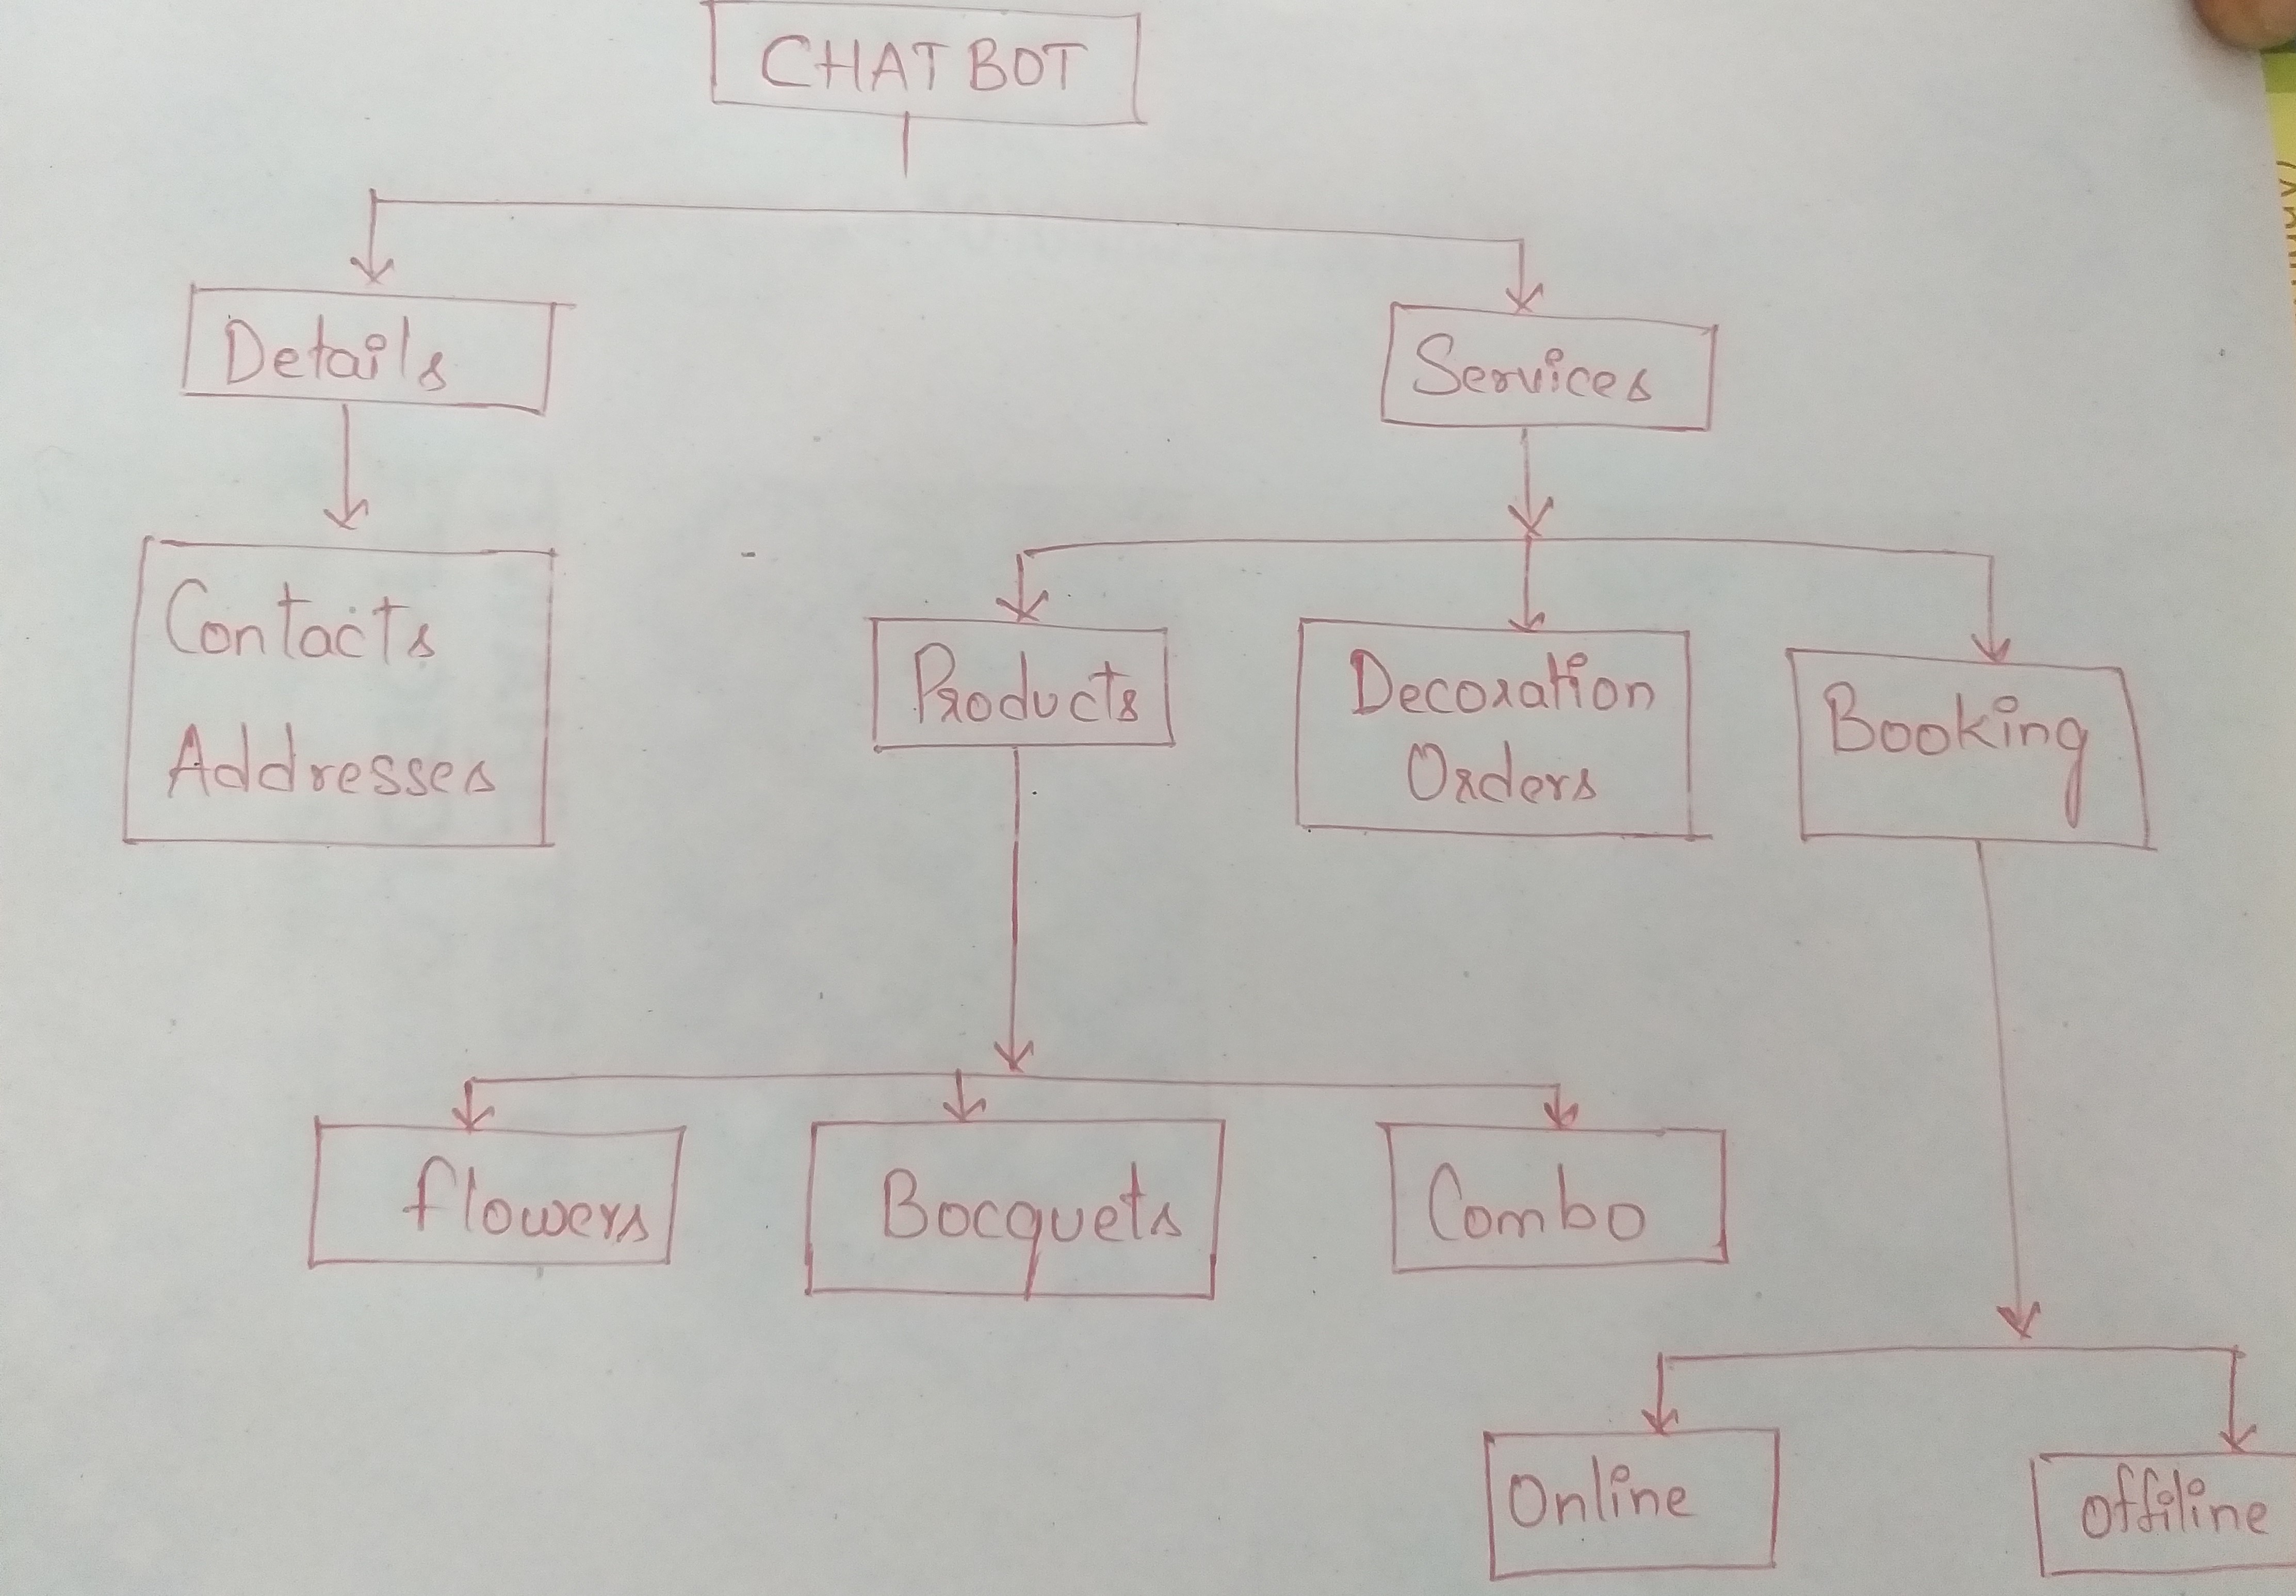 CHAT BOT
Details
Services
Contacts
Addresses
Products
Decoration
Orders
Booking
flowers
Bocquets
Combo
Online
offiline